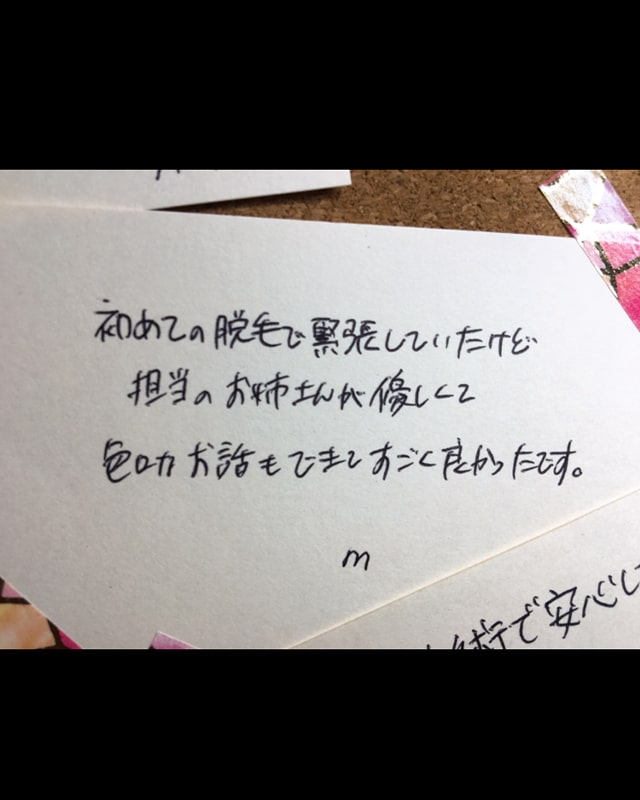 初めての脱毛で緊張していたけど
担当のお姉さんが優しくて
色々お話もできてすごく良かったです。
m
術で安心し